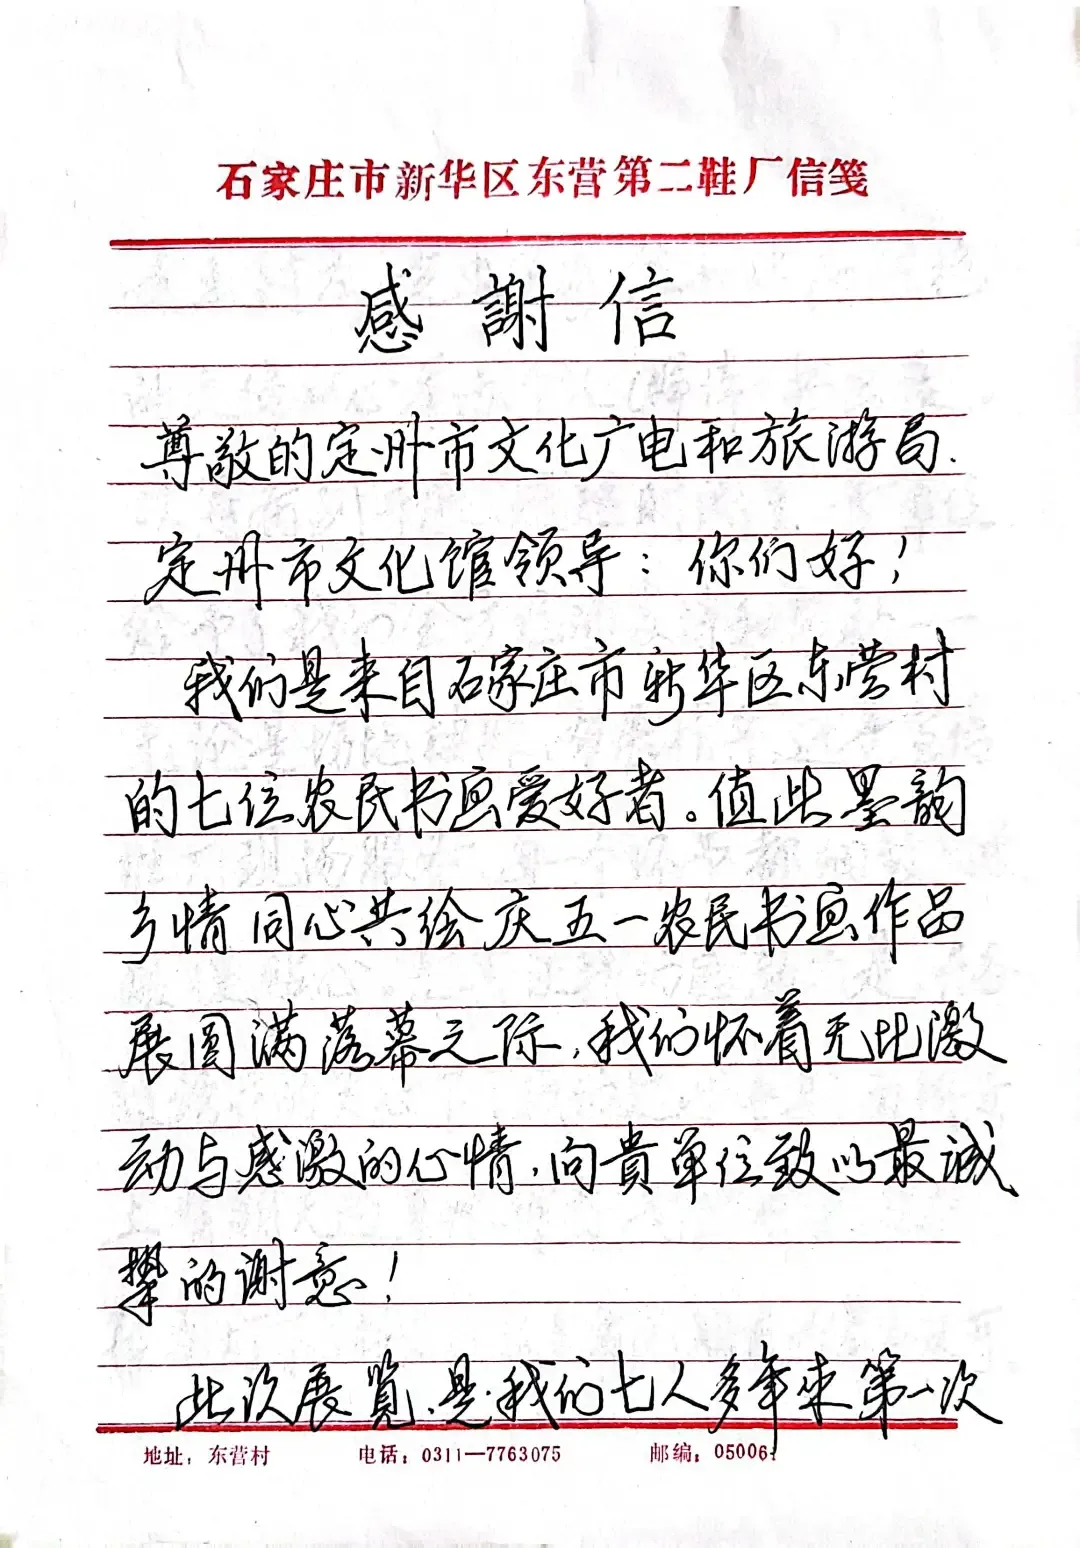 石家庄市新华区东营第二鞋厂信笺
感謝信
尊敬的定州市文化广电和旅游局.
定州市文化馆领导：你们好！
我们是来自石家庄市新华区东营村
的七位农民书画爱好者。值此墨韵
乡情同心共绘庆五一农民书画作品
展圆满落幕之际,我们怀着无比激
动与感激的心情,向貴单位致以最诚
挚的谢意！
此次展览.是我们七人多年来第一次
地址：东营村 电话：0311—7763075 邮编：05006